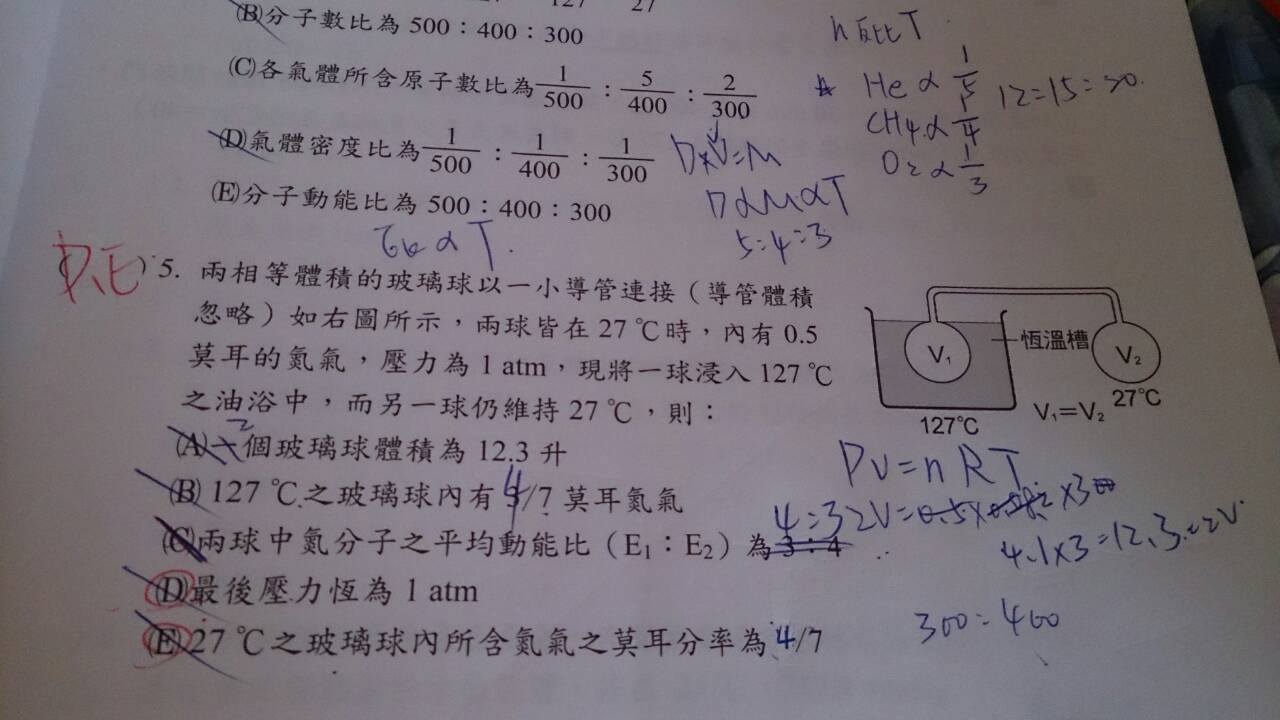 (B)分子數比為 500：400：300
n 反比 T
(C)各氣體所含原子數比為 1/500 ： 5/400 ： 2/300
He ∝ 1/5 12=15=20.
CH4 ∝ 1/4
O2 ∝ 1/3
(D)氣體密度比為 1/500 ： 1/400 ： 1/300
D×V=M
(E)分子動能比為 500：400：300
D∝M∝T
5:4:3
Ek ∝ T.
D.E
5. 兩相等體積的玻璃球以一小導管連接（導管體積
忽略）如右圖所示，兩球皆在 27 ℃時，內有 0.5
莫耳的氮氣，壓力為 1 atm，現將一球浸入 127 ℃
之油浴中，而另一球仍維持 27 ℃，則：
V1
恆溫槽
V2
127℃
V1＝V2
27℃
(A)一個玻璃球體積為 12.3 升
2
(B) 127 ℃之玻璃球內有 3/7 莫耳氮氣
4
(C)兩球中氮分子之平均動能比（E1：E2）為 3：4
4:3
(D)最後壓力恆為 1 atm
(E) 27 ℃之玻璃球內所含氮氣之莫耳分率為 4/7
PV=nRT
2V=0.5×0.082×300
4.1×3=12.3=2V
300=400